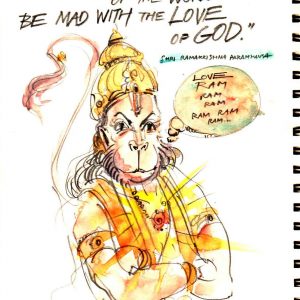 OF THE WOR
BE MAD WITH THE LOVE
OF GOD."
SHRI RAMAKRISHNA
LOVE
RAM
RAM
RAM
RAM RAM
RAM...